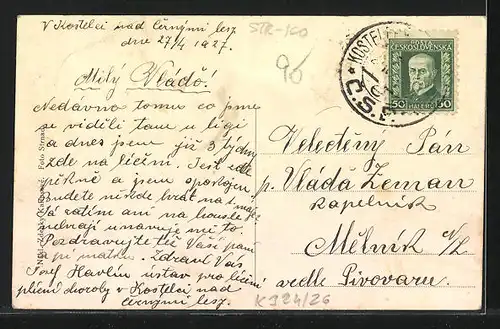 V Kostelci nad Černými lesy
dne 27/4 1927.
STR-160
96
Milý Vláďo!
Nedávno tomu co jsme
se viděli tam u
a dnes jsem již 3 týdny
zde na léčení. Jest zde
pěkně a jsem spokojen
budete někde hrát na
Já zatím ani na housle
nehraji unavuje mě to.
Pozdravujte též Vaší paní
a pí matku. Zdraví Vás
Josef Havlín ústav pro léčení
plicní choroby v Kostelci nad
černými lesy.
KOSTELEC
Č.S.
POŠTA
ČESKOSLOVENSKÁ
50 HALÉŘŮ 50
Velectěný Pán
p. Vláďa Zeman
kapelník
Mělník n/L
vedle Pivovaru.
K924/26
Foto Strnad